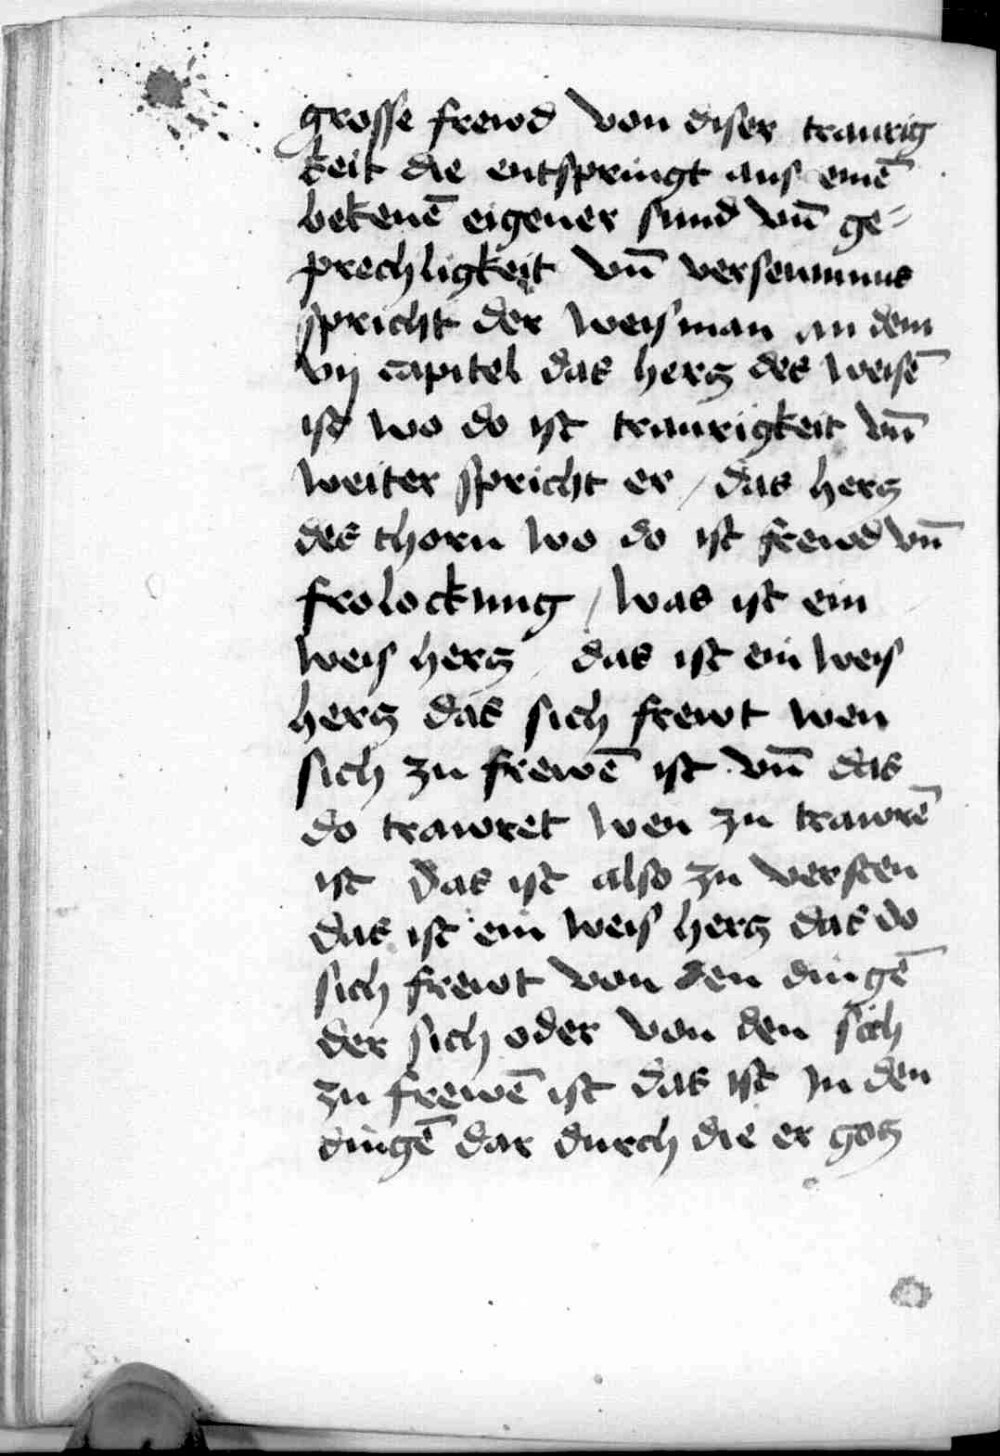 grosse frewd von diser traurig
keit die entspringt aus einē
bekenē eigener sund vn̄ ge-
prechligkeit vn̄ verseumnus
spricht der weisman an dem
vij capitel das hercz des weisē
ist wo do ist traurigkeit vn̄
weiter spricht er / das hercz
des thorn wo do ist frewd vn̄
frolockung / was ist ein
weis hercz / das ist ein weis
hercz das sich frewt wen
sich zu frewē ist vn̄ das
do trawret wen zu trawrē
ist das ist also zu versten
das ist ein weis hercz das do
sich frewt von den dingē
der sich oder von den sich
zu frewē ist das ist in den
dingē dar durch die er gocz